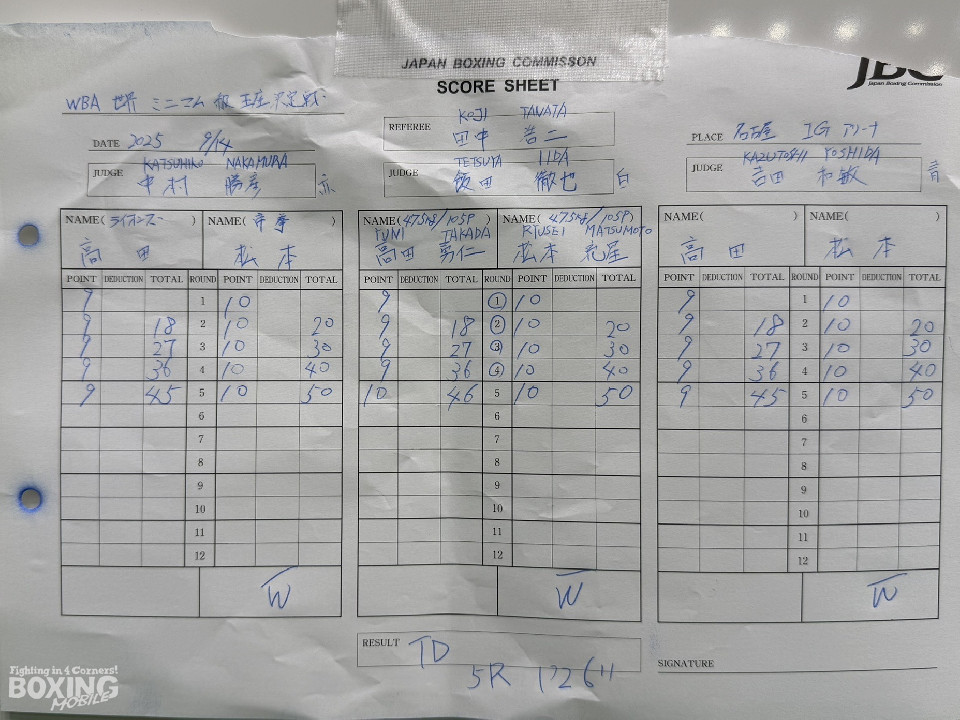 JAPAN BOXING COMMISSON
SCORE SHEET
JBC
Japan Boxing Commission
WBA 世界 ミニマム級 王座決定戦
DATE 2025 9/14
REFEREE KOJI TANATA
田中 浩二
PLACE 名古屋 IGアリーナ
JUDGE KATSUHIKO NAKAMURA
中村 勝彦 赤
JUDGE TETSUYA IIDA
飯田 徹也 白
JUDGE KAZUTOSHI YOSHIDA
吉田 和敏 青
NAME(ライオンズ ) NAME( 帝拳 )
高田 松本
NAME(47.5kg/105P ) NAME(47.5kg/105P)
YUNI TAKADA RYUSEI MATSUMOTO
高田 勇仁 松本 流星
NAME( ) NAME( )
高田 松本
POINT DEDUCTION TOTAL ROUND POINT DEDUCTION TOTAL
9 1 10
9 18 2 10 20
9 27 3 10 30
9 36 4 10 40
9 45 5 10 50
6
7
8
9
10
11
12
W
POINT DEDUCTION TOTAL ROUND POINT DEDUCTION TOTAL
9 1 10
9 18 2 10 20
9 27 3 10 30
9 36 4 10 40
10 46 5 10 50
6
7
8
9
10
11
12
W
POINT DEDUCTION TOTAL ROUND POINT DEDUCTION TOTAL
9 1 10
9 18 2 10 20
9 27 3 10 30
9 36 4 10 40
9 45 5 10 50
6
7
8
9
10
11
12
W
RESULT TD
5R 1'26"
SIGNATURE
Fighting in 4 Corners!
BOXING
MOBILE